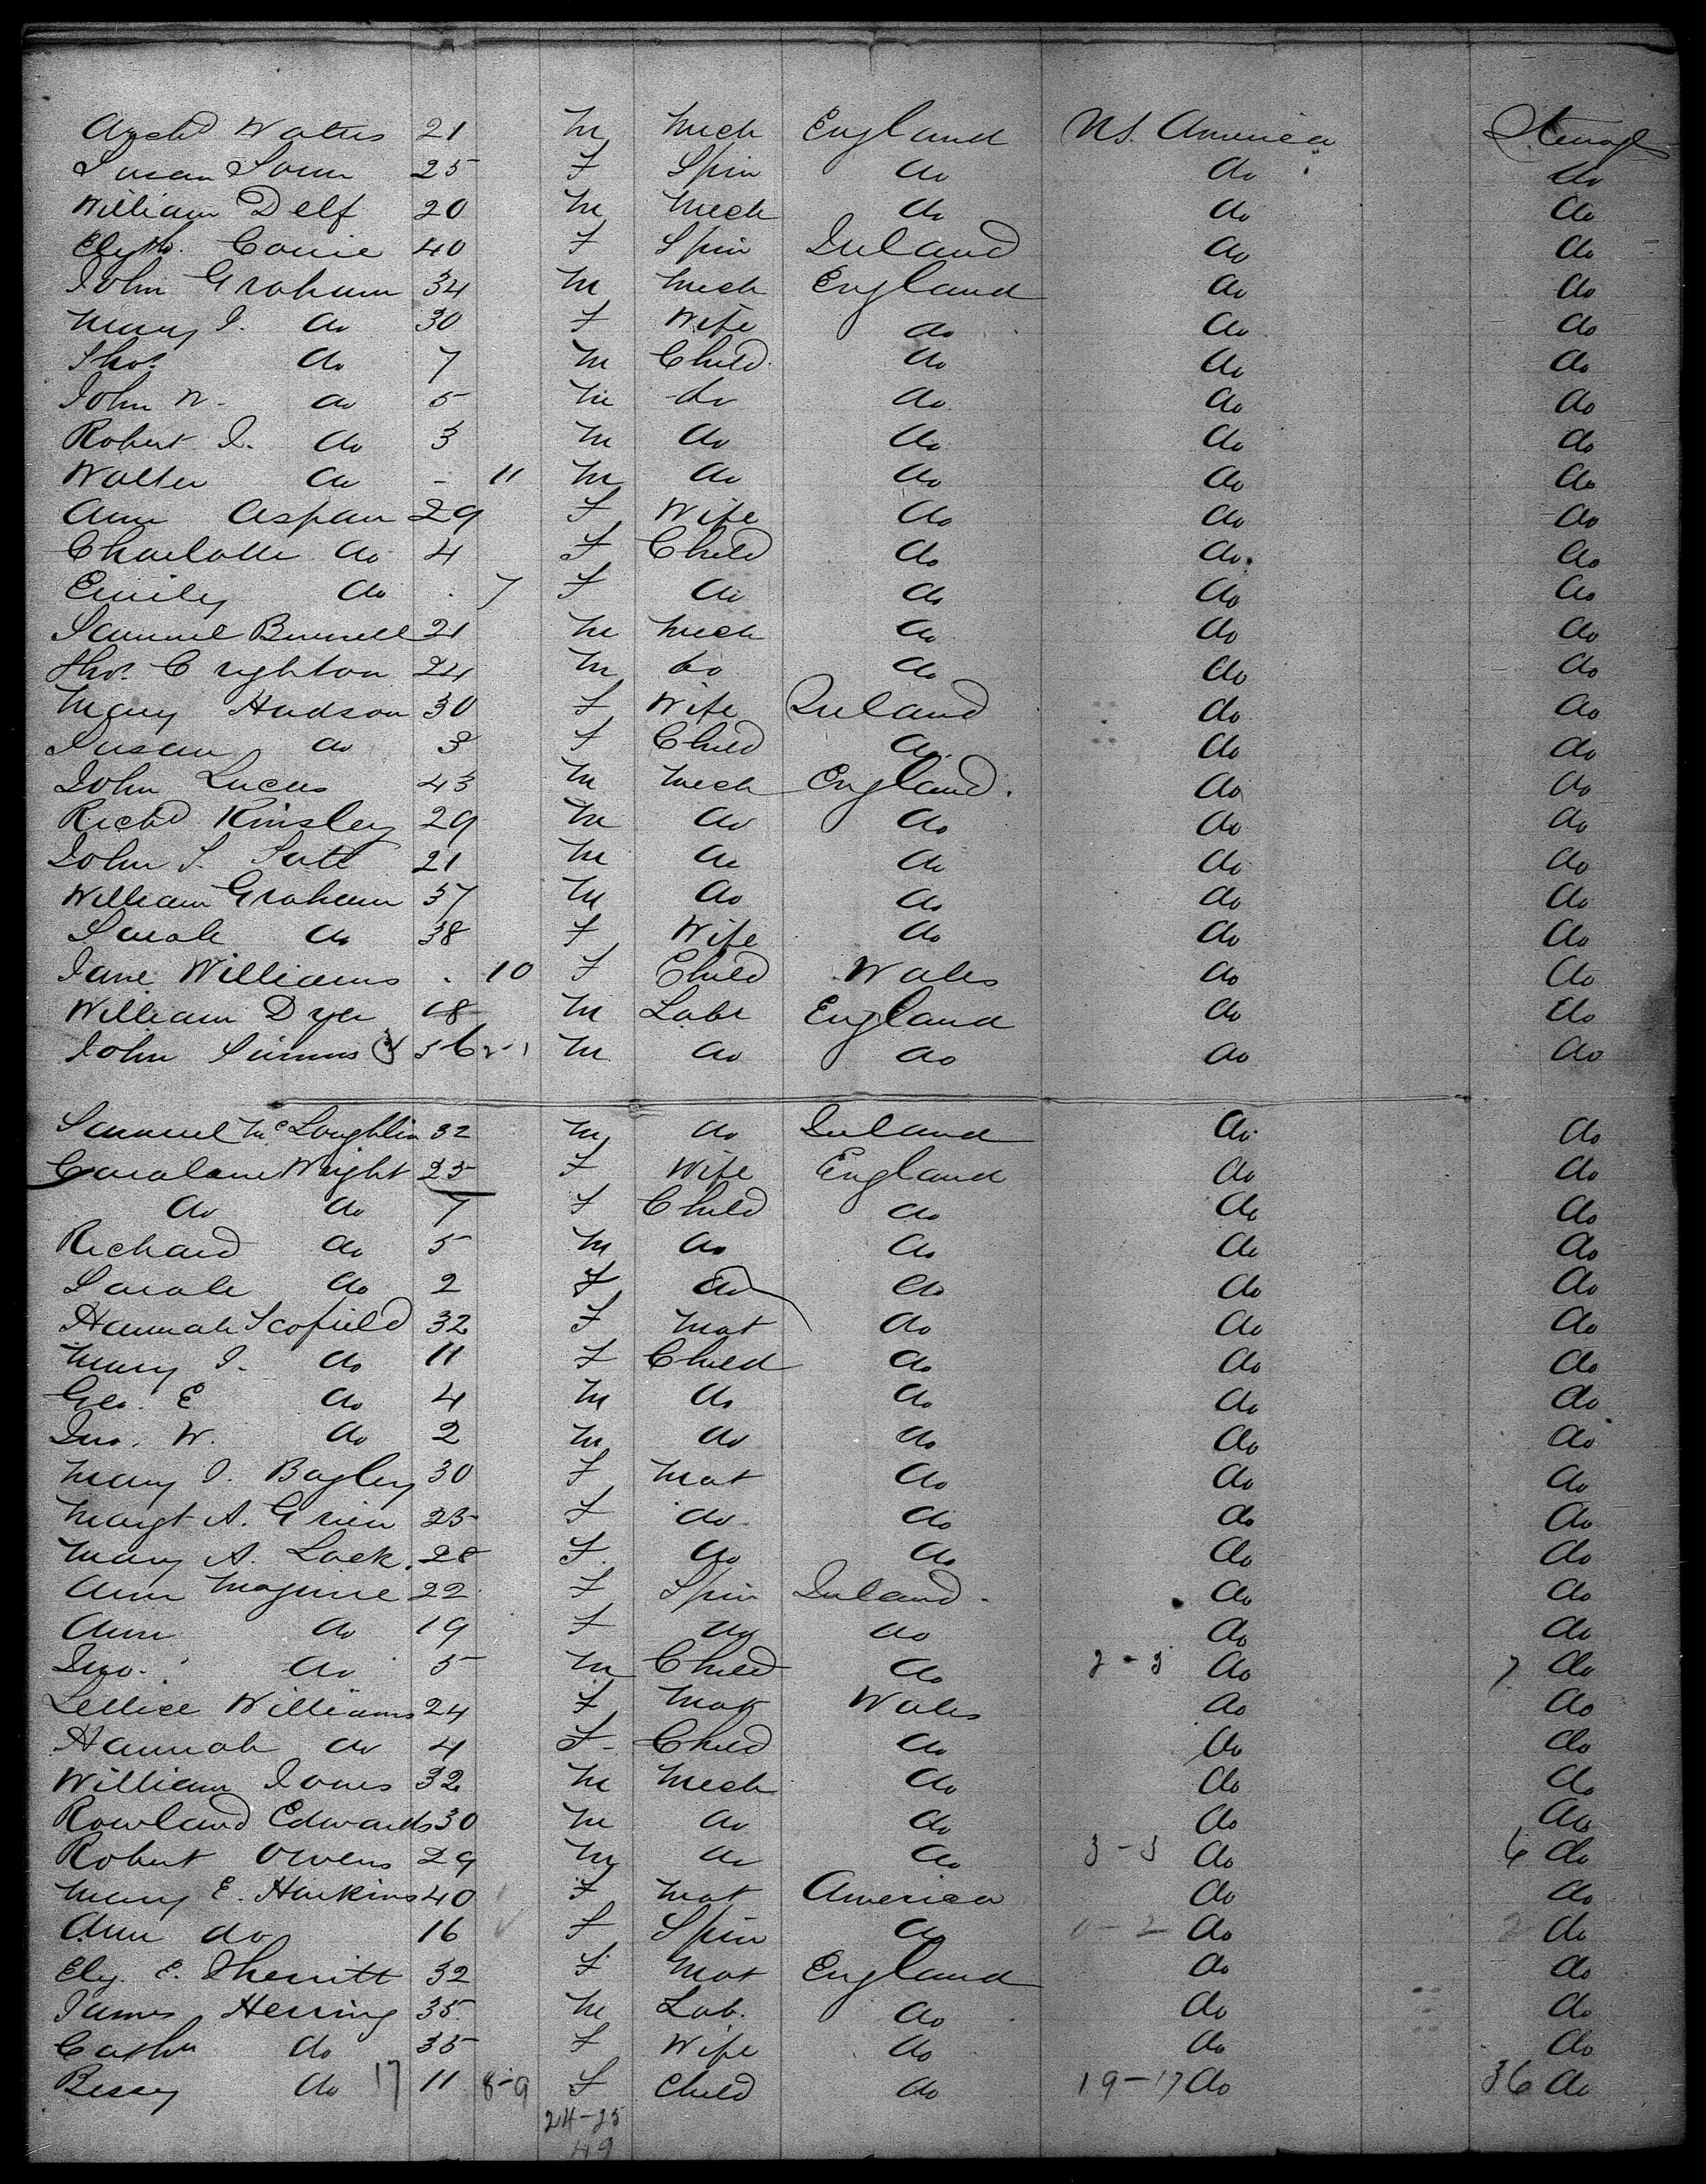 Archd Watters 21 M Mech England U.S. America Steerage
Susan 25 F Spin do do do
William Delf 20 M Mech do do do
Elizth. Corrie 40 F Spin Ireland do do
John Graham 34 M Mech England do do
Mary J. do 30 F Wife do do do
Thos. do 7 M Child do do do
John W. do 5 M do do do do
Robert J. do 3 M do do do do
Walter do - 11 M do do do do
Ann Aspan 29 F Wife do do do
Charlotte do 4 F Child do do do
Emily do . 7 F do do do do
Samuel Bunnell 21 M Mech do do do
Thos. Crighton 24 M do do do do
Mary Hudson 30 F Wife Ireland do do
Susan do 3 F Child do do do
John Lucas 43 M Mech England do do
Richd Kinsley 29 M do do do do
John S. 21 M do do do do
William Graham 37 M do do do do
Sarah do 38 F Wife do do do
Jane Williams . 10 F Child Wales do do
William Dyer 18 M Labr England do do
John Simms 56 M do do do do
Samuel McLoughlin 32 M do Ireland do do
Caroline Wright 25 F Wife England do do
do do 7 F Child do do do
Richard do 5 M do do do do
Sarah do 2 F do do do do
Hannah Scofield 32 F Mat do do do
Mary J. do 11 F Child do do do
Geo. E do 4 M do do do do
Jno. W. do 2 M do do do do
Mary J. Bagley 30 F Mat do do do
Margt A. Grien 25 F do do do do
Mary A. Lock 28 F do do do do
Ann Maguire 22 F Spin Ireland do do
Ann do 19 F do do do do
Jno. do 5 M Child do 2-3 do 7 do
Lettice Williams 24 F Mat Wales do do
Hannah do 4 F Child do do do
William Jones 32 M Mech do do do
Rowland Edwards 30 M do do do do
Robert Owens 29 M do do 3-3 do 6 do
Mary E. Harkins 40 F Mat America do do
Ann do 16 F Spin do 0-2 do 2 do
Elz. E. Sherritt 32 F Mat England do do
James Herring 35 M Lab. do do do
Cathn do 35 F Wife do do do
Bessy do 17 11 8-9 F Child do 19-17 do 36 do
24-25
49